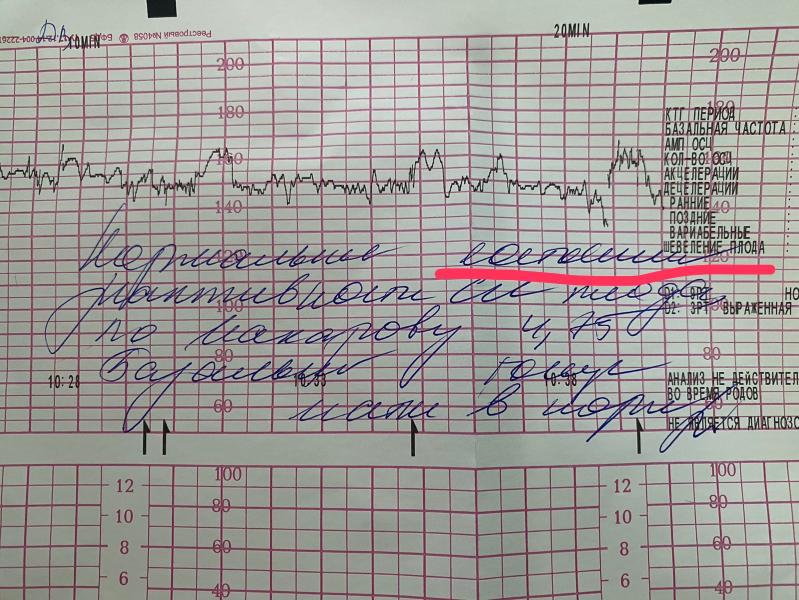 Реестровый №4058
10MIN
20MIN
200 200
180 180
160 160
140 140
120 120
100
80 80
60
КТГ ПЕРИОД :
БАЗАЛЬНАЯ ЧАСТОТА :
АМП ОСЦ :
КОЛ-ВО ОСЦ :
АКЦЕЛЕРАЦИИ :
ДЕЦЕЛЕРАЦИИ :
РАННИЕ :
ПОЗДНИЕ :
ВАРИАБЕЛЬНЫЕ :
ШЕВЕЛЕНИЕ ПЛОДА :
Нормальное состояние
реактивности плода
D2: ЗРТ ВЫРАЖЕННАЯ
по Макарову 4,75
Базальный тонус
матки в норме
10:28 10:33 10:38
АНАЛИЗ НЕ ДЕЙСТВИТЕЛ
ВО ВРЕМЯ РОДОВ
НЕ ЯВЛЯЕТСЯ ДИАГНОЗО
100 100
12 80 12 80
10 10
8 60 8 60
6 6
40 40